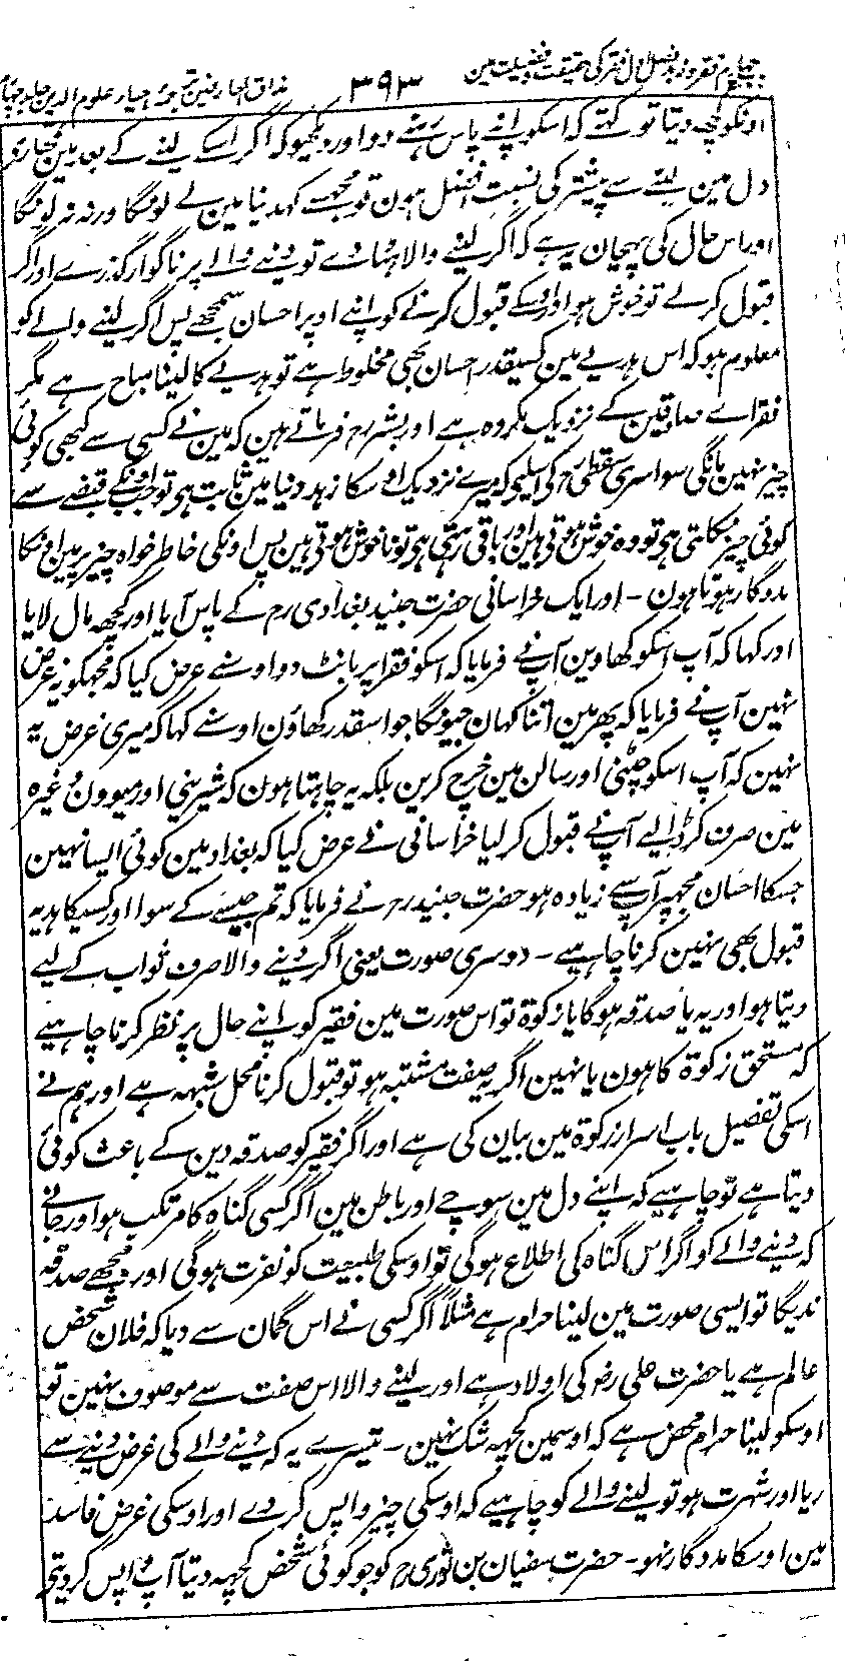 باب چہارم فقر و زہد فصل اول فقر کی حقیقت و فضیلت مین ۳۹۳ مذاق العارفین ترجمۂ احیاء علوم الدین جلد چہارم
اونکو کچھ دیتا تو کہتے کہ اسکو اپنے پاس رہنے دو اور دیکھو کہ اگر اسکے لینے کے بعد مین تمھاری
دل مین لینے سے پیشتر کی نسبت افضل ہون تو مجھسے کہدنیا مین لے لونگا ورنہ نہ لونگا
اور اس حال کی پہچان یہ ہے کہ اگر لینے والا ہٹا دے تو دینے والے پر ناگوار گذرے اور اگر
قبول کرلے تو خوش ہو اور اوسکے قبول کرنے کو اپنے اوپر احسان سمجھے پس اگر لینے والے کو
معلوم ہو کہ اس ہدیے مین کسیقدر احسان بھی مخلوط ہے تو ہدیے کا لینا مباح ہے مگر
فقراے صادقین کے نزدیک مکروہ ہے اور بشر رح فرماتے ہین کہ مین نے کسی سے کبھی کوئی
چیز نہین مانگی سوا سری سقطی رح کی اسلیے کہ میرے نزدیک اوسکا زہد دنیا مین ثابت ہی تو جب اونکے قبضے سے
کوئی چیز نکلتی ہی تو وہ خوش ہوتی ہین اور باقی رہتی ہی تو ناخوش ہوتی ہین پس اونکی خاطر خواہ چیز پر مین اونکا
مددگار ہوتا ہون ۔ اور ایک خراسانی حضرت جنید بغدادی رح کے پاس آیا اور کچھ مال لایا
اور کہا کہ آپ اسکو کھاوین آپ نے فرمایا کہ اسکو فقرا پر بانٹ دو اوسنے عرض کیا کہ مجھکو یہ غرض
نہین آپ نے فرمایا کہ پھر مین اتنا کہان جیونگا جو اسقدر کھاؤن اوسنے کہا کہ میری غرض یہ
نہین کہ آپ اسکو چٹنی اور سالن مین خرچ کرین بلکہ یہ چاہتا ہون کہ شیرینی اور میوون وغیرہ
مین صرف کر ڈالیے آپ نے قبول کر لیا خراسانی نے عرض کیا کہ بغداد مین کوئی ایسا نہین
جسکا احسان مجھپر آپ سے زیادہ ہو حضرت جنید رح نے فرمایا کہ تم جیسے کے سوا اور کسیکا ہدیہ
قبول بھی نہین کرنا چاہیے ۔ دوسری صورت یعنی اگر دینے والا صرف ثواب کے لیے
دیتا ہو اور یہ یا صدقہ ہوگا یا زکوۃ تو اس صورت مین فقیر کو اپنے حال پر نظر کرنا چاہیے
کہ مستحق زکوۃ کا ہون یا نہین اگر یہ صفت مشتبہ ہو تو قبول کرنا محل شبہہ ہے اور ہم نے
اسکی تفصیل باب اسرار زکوۃ مین بیان کی ہے اور اگر فقیر کو صدقہ دین کے باعث کوئی
دیتا ہے تو چاہیے کہ اپنے دل مین سوچے اور باطن مین اگر کسی گناہ کا مرتکب ہو اور جانے
کہ دینے والے کو اگر اس گناہ کی اطلاع ہوگی تو اوسکی طبیعت کو نفرت ہوگی اور مجھے صدقہ
ندیگا تو ایسی صورت مین لینا حرام ہے مثلاً اگر کسی نے اس گمان سے دیا کہ فلان شخص
عالم ہے یا حضرت علی رض کی اولاد ہے اور لینے والا اس صفت سے موصوف نہین تو
اوسکو لینا حرام محض ہے کہ اوسمین کچھ شک نہین ۔ تیسرے یہ کہ دینے والے کی غرض دینے سے
ریا اور شہرت ہو تو لینے والے کو چاہیے کہ اوسکی چیز واپس کر دے اور اوسکی غرض فاسد
مین اوسکا مددگار نہو ۔ حضرت سفیان بن ثوری رح کو جو کوئی شخص کچھ دیتا آپ واپس کردیتے